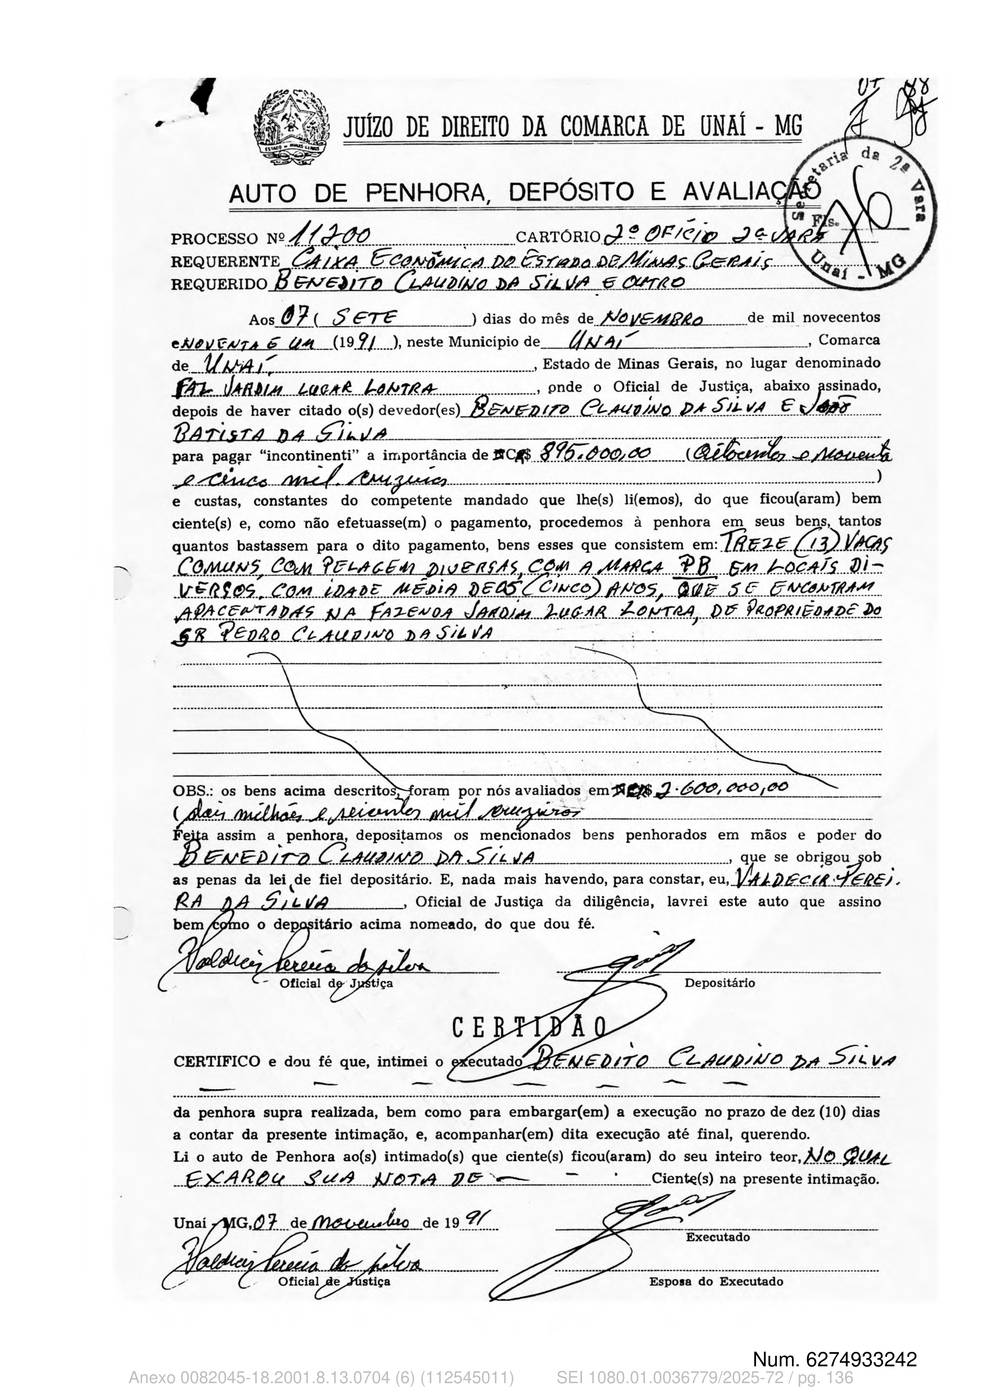 JUÍZO DE DIREITO DA COMARCA DE UNAÍ - MG
AUTO DE PENHORA, DEPÓSITO E AVALIAÇÃO
Secretaria da 2ª Vara
Fls.
Unaí - MG
PROCESSO Nº 11200 CARTÓRIO 2º OFÍCIO 2ª VARA
REQUERENTE CAIXA ECONÔMICA DO ESTADO DE MINAS GERAIS
REQUERIDO BENEDITO CLAUDINO DA SILVA E OUTRO
Aos 07 ( SETE ) dias do mês de NOVEMBRO de mil novecentos
e NOVENTA E UM (1991), neste Município de UNAÍ, Comarca
de UNAÍ, Estado de Minas Gerais, no lugar denominado
FAZ JARDIM LUGAR LONTRA, onde o Oficial de Justiça, abaixo assinado,
depois de haver citado o(s) devedor(es) BENEDITO CLAUDINO DA SILVA E JOÃO
BATISTA DA SILVA
para pagar "incontinenti" a importância de Cr$ 895.000,00 (Oitocentos e noventa
e cinco mil cruzeiros)
e custas, constantes do competente mandado que lhe(s) li(emos), do que ficou(aram) bem
ciente(s) e, como não efetuasse(m) o pagamento, procedemos à penhora em seus bens, tantos
quantos bastassem para o dito pagamento, bens esses que consistem em: TREZE (13) VACAS
COMUNS, COM PELAGEM DIVERSAS, COM A MARCA PB EM LOCAIS DI-
VERSOS, COM IDADE MÉDIA DE 05 (CINCO) ANOS, QUE SE ENCONTRAM
APACENTADAS NA FAZENDA JARDIM LUGAR LONTRA, DE PROPRIEDADE DO
SR PEDRO CLAUDINO DA SILVA
OBS.: os bens acima descritos, foram por nós avaliados em Cr$ 2.600,000,00
(dois milhões e seicentos mil cruzeiros
Feita assim a penhora, depositamos os mencionados bens penhorados em mãos e poder do
BENEDITO CLAUDINO DA SILVA, que se obrigou sob
as penas da lei de fiel depositário. E, nada mais havendo, para constar, eu, VALDECIR PEREI-
RA DA SILVA, Oficial de Justiça da diligência, lavrei este auto que assino
bem como o depositário acima nomeado, do que dou fé.
Valdecir Pereira da Silva
Oficial de Justiça Depositário
CERTIDÃO
CERTIFICO e dou fé que, intimei o executado BENEDITO CLAUDINO DA SILVA
da penhora supra realizada, bem como para embargar(em) a execução no prazo de dez (10) dias
a contar da presente intimação, e, acompanhar(em) dita execução até final, querendo.
Li o auto de Penhora ao(s) intimado(s) que ciente(s) ficou(aram) do seu inteiro teor, NO QUAL
EXAROU SUA NOTA DE - - - Ciente(s) na presente intimação.
Unaí - MG, 07 de novembro de 1991
Executado
Valdecir Pereira da Silva
Oficial de Justiça Esposa do Executado
Num. 6274933242
Anexo 0082045-18.2001.8.13.0704 (6) (112545011) SEI 1080.01.0036779/2025-72 / pg. 136